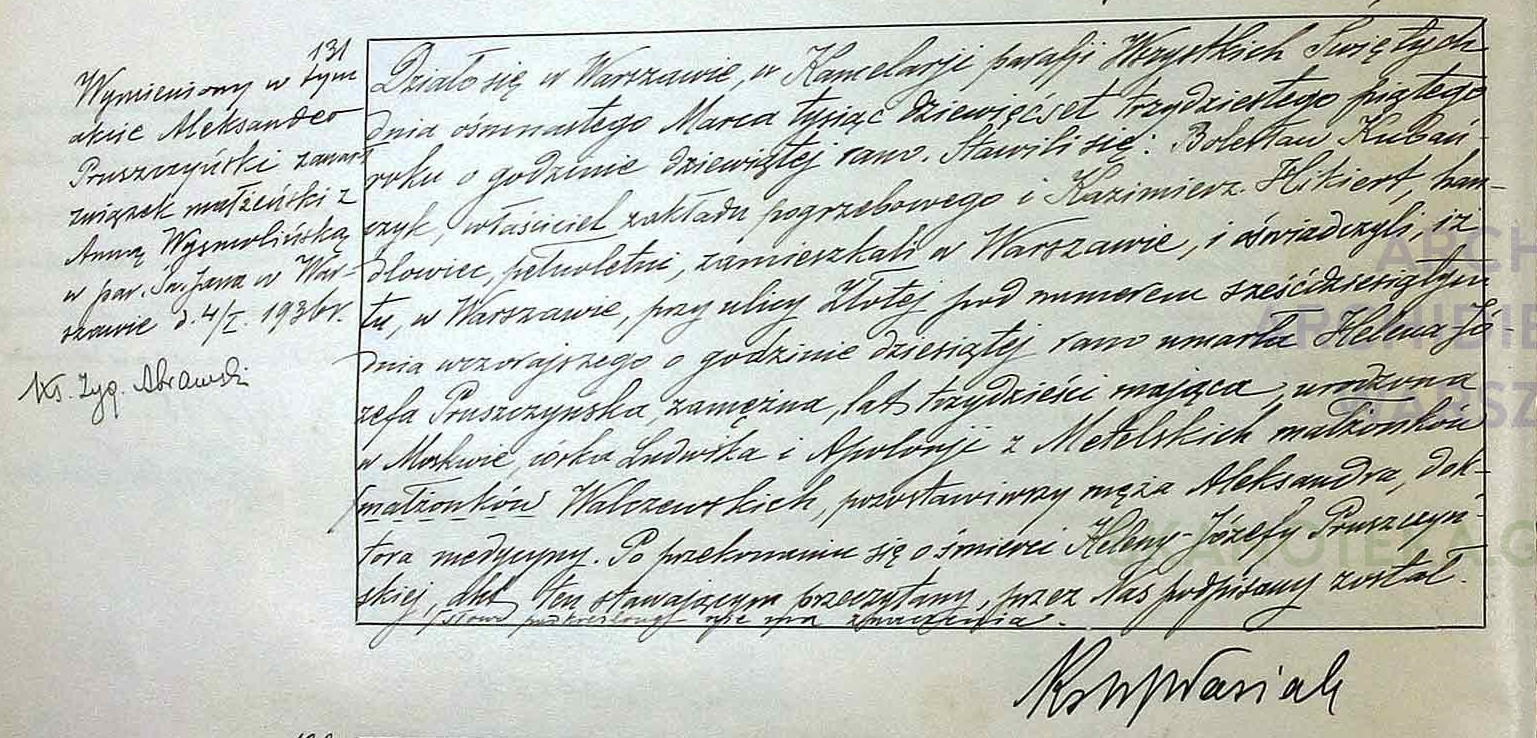 131
Wymieniony w tym
akcie Aleksander
Pruszczyński zawarł
związek małżeński z
Anną Wysmolińską
w par. Św. Jana w War-
szawie d. 4/I. 1936 r.
Ks. Zyg.
Działo się w Warszawie, w Kancelarji parafji Wszystkich Świętych
dnia ośmnastego Marca tysiąc dziewięćset trzydziestego piątego
roku o godzinie dziewiątej rano. Stawili się: Bolesław Kubań-
czyk, właściciel zakładu pogrzebowego i Kazimierz Hikiert, han-
dlowiec, pełnoletni, zamieszkali w Warszawie, i oświadczyli, iż
tu, w Warszawie, przy ulicy Złotej pod numerem sześćdziesiątym
dnia wczorajszego o godzinie dziesiątej rano umarła Helena-Jó-
zefa Pruszczyńska, zamężna, lat trzydzieści mająca, urodzona
w Moskwie, córka Ludwika i Apolonji z Metelskich małżonków
małżonków Walczewskich, pozostawiwszy męża Aleksandra, dok-
tora medycyny. Po przekonaniu się o śmierci Heleny-Józefy Pruszczyń-
skiej, akt ten stawającym przeczytany, przez Nas podpisany został.
słowo podkreślone nie ma znaczenia.
ARCH
ARCHIDIE
WARSZ
SKANOTEKA.G